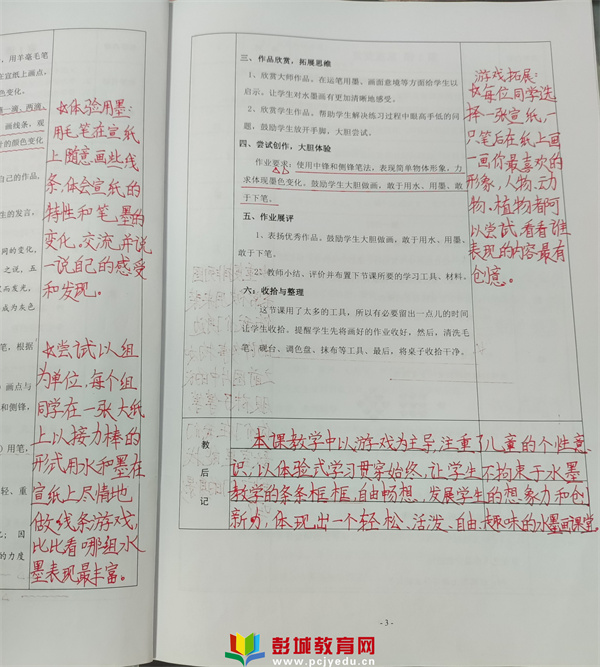 用羊毫毛笔
在宣纸上画点、
色变化。
滴一滴、两滴、
画线条，观
的颜色变化
自己的作品，
生的发言，
同的变化，
之说，五
而发光，
成为灰色
笔，根据
）画点与
和侧锋，
）用笔，
轻、重
化； 因
的力度
☆体验用墨：
用毛笔在宣纸
上随意画些线
条，体会宣纸的
特性和笔、墨的
变化。交流、并说
一说自己的感受
和发现。
☆尝试以组
为单位，每个组
同学在一张大纸
上以接力棒的
形式用水和墨在
宣纸上尽情地
做线条游戏，
比比看哪组水
墨表现最丰富。
三、作品欣赏，拓展思维
1、欣赏大师作品。在运笔用墨、画面意境等方面给学生以
启示。让学生对水墨画有更加清晰地感受。
2、欣赏学生作品。帮助学生解决练习过程中眼高手低的问
题，鼓励学生放开手脚，大胆尝试。
四、尝试创作，大胆体验
作业要求：使用中锋和侧锋笔法，表现简单物体形象，力
求体现墨色变化。鼓励学生大胆做画，敢于用水、用墨、敢
于下笔。
五、作业展评
1、表扬优秀作品。鼓励学生大胆做画，敢于用水、用墨、
敢于下笔。
2、教师小结、评价并布置下节课所要的学习工具、材料。
六：收拾与整理
这节课用了太多的工具，所以有必要留出一点儿的时间
让学生收拾。提醒学生先将画好的作业收好，然后，清洗毛
笔、砚台、调色盘、抹布等工具、最后，将桌子收拾干净。
游戏拓展：
☆每位同学选
择一张宣纸，一
只笔后在纸上画
一画你最喜欢的
形象，人物、动
物、植物者都可
以尝试，看看谁
表现的内容最有
创意。
教
后
记
本课教学中以游戏为主导，注重了儿童的个性意
识，以体验式学习贯穿始终，让学生不拘束于水墨
教学的条条框框，自由畅想，发展学生的想象力和创
新力，体现出一个轻松、活泼、自由、趣味的水墨画课堂。
- 3 -
彭城教育网
www.pcjyedu.cn